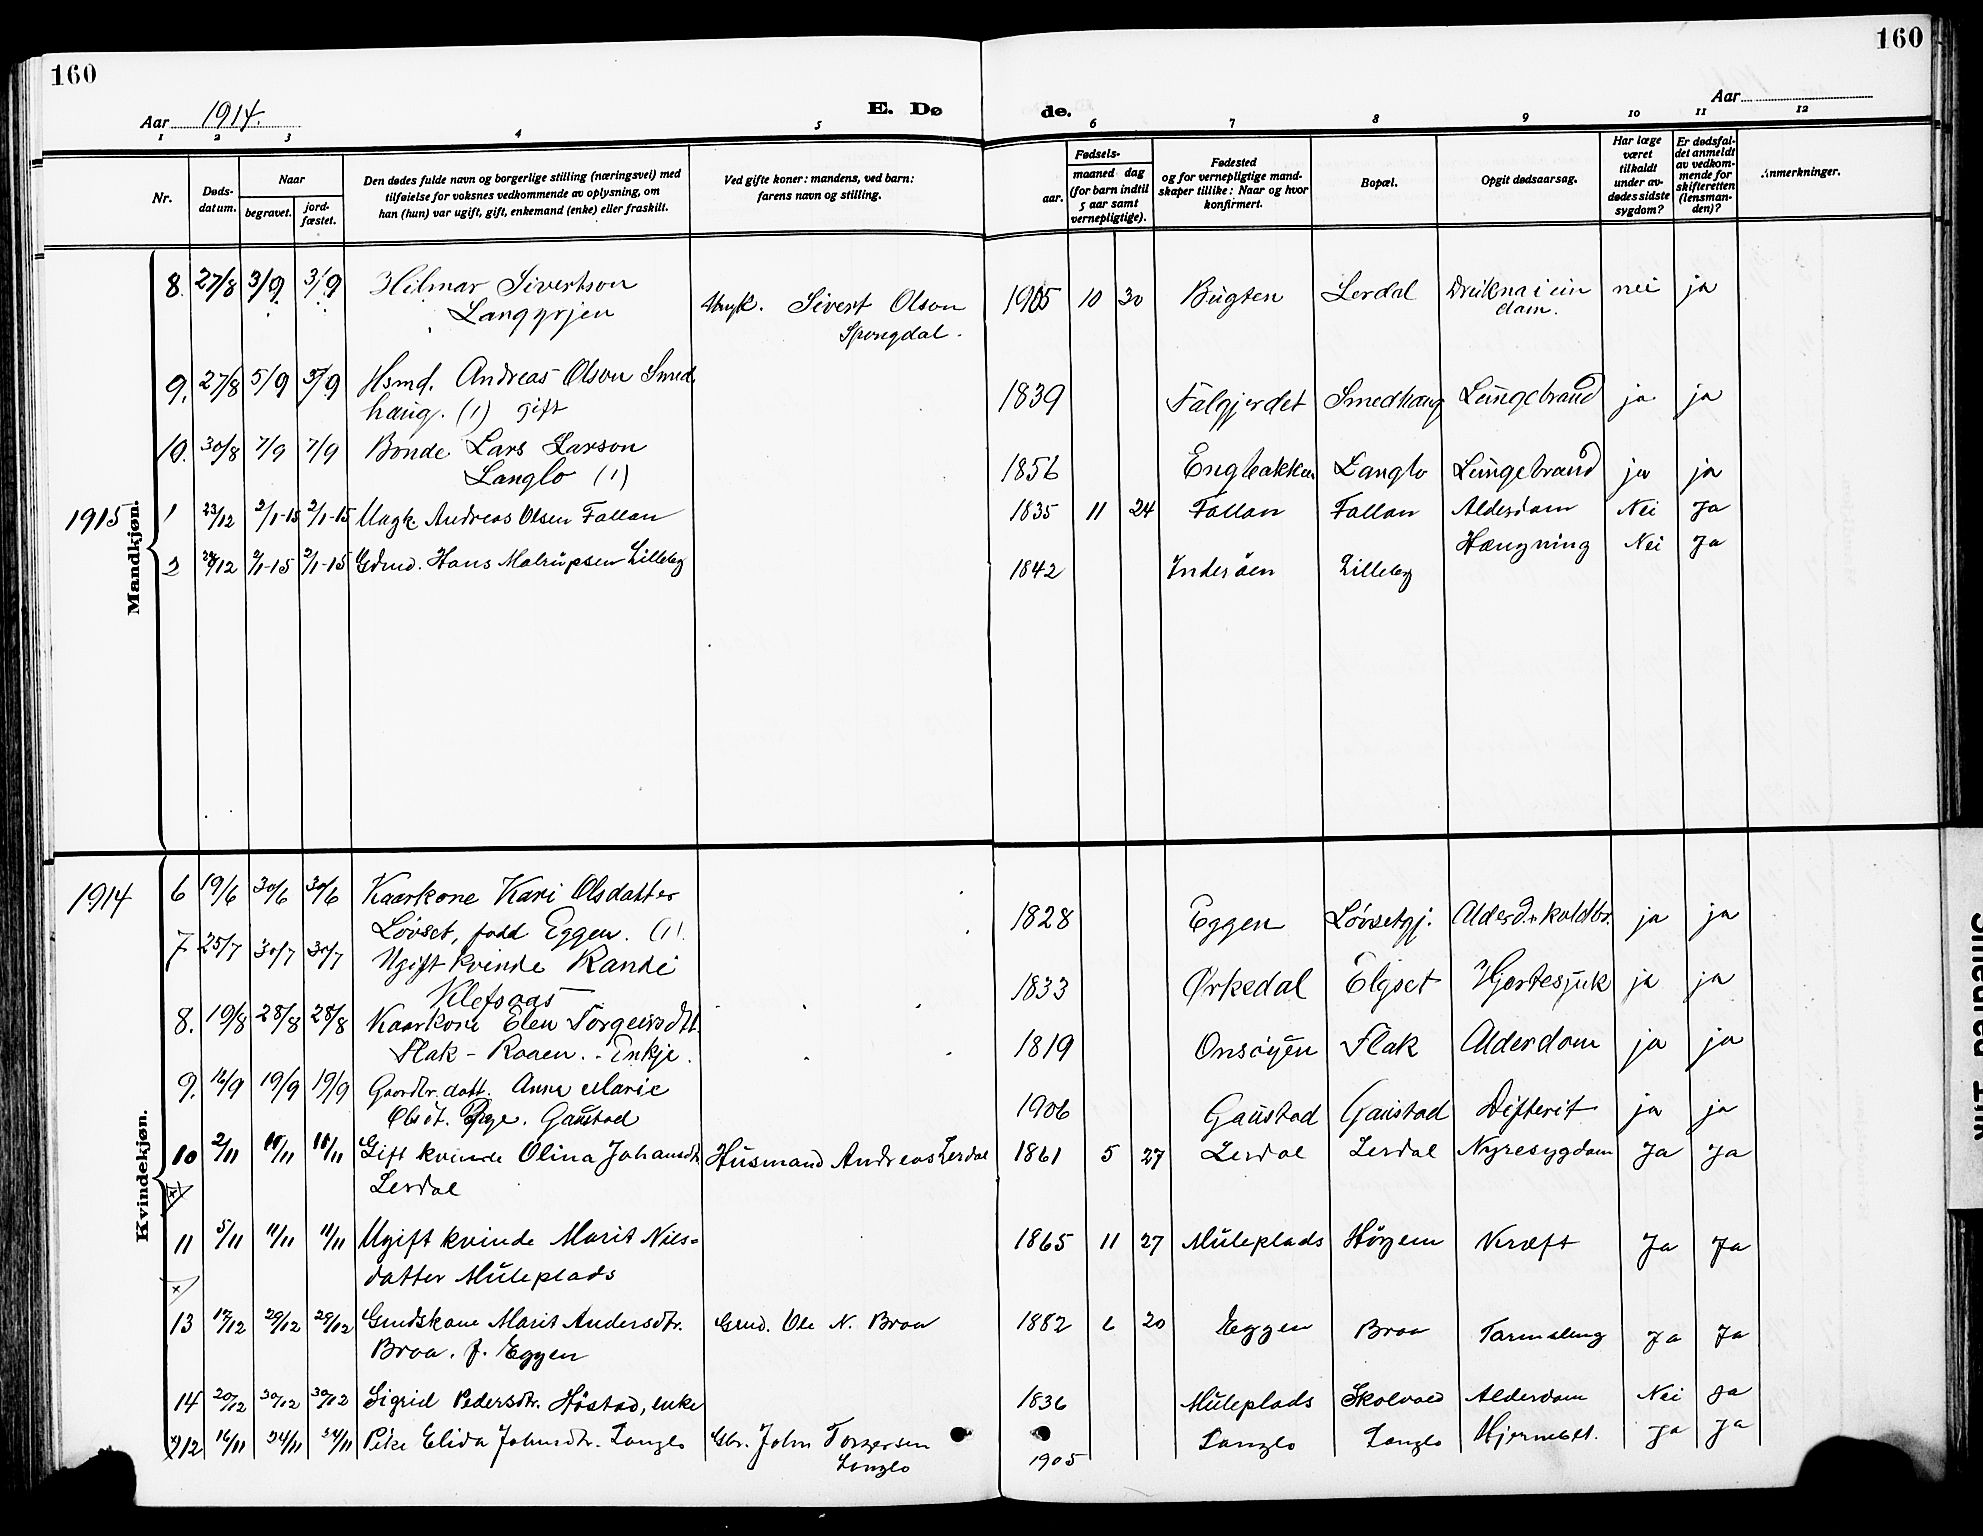 160
160
Aar 1914.
E. Dø
de.
Aar
1 2 3 4 5 6 7 8 9 10 11 12
Nr.
Døds-
datum.
Naar
begravet.
jord-
fæstet.
Den dødes fulde navn og borgerlige stilling (næringsvei) med
tilføielse for voksnes vedkommende av oplysning, om
han (hun) var ugift, gift, enkemand (enke) eller fraskilt.
Ved gifte koner: mandens, ved barn:
farens navn og stilling.
Fødsels-
aar.
maaned dag
(for barn indtil
5 aar samt
vernepligtige).
Fødested
og for vernepligtige mand-
skaper tillike: Naar og hvor
konfirmert.
Bopæl.
Opgit dødsaarsag.
Har læge
været
tilkaldt
under av-
dødes sidste
sygdom?
Er dødsfal-
det anmeldt
av vedkom-
mende for
skifteretten
(lensman-
den)?
Anmerkninger.
Mandkjøn.
8. 27/8 3/9 3/9 Hilmar Sivertson Sivert Olson 1905 10 30 Bugten Lerdal Drukna i ein nei ja
Langyrjen Spongdal. dam.
9. 27/8 5/9 5/9 Hsmd. Andreas Olson Smed 1839 Falgjerdet Smedhaug Lungebrand ja ja
haug. (1) gift
10. 30/8 7/9 7/9 Bonde Lars Larson 1856 Engbakken Langlo Lungebrand ja ja
Langlo (1)
1915 1 23/12 2/1-15 2/1-15 Ungk. Andreas Olsen Fallan 1835 11 24 Fallan Fallan Aldersdom Nei Ja
2 24/12 2/1-15 2/1-15 Gdmd. Hans Lilleby 1842 Inderøen Lilleby Hængning Nei Ja
Kvindekjøn.
1914 6 19/6 30/6 30/6 Kaarkone Kari Olsdatter 1828 Eggen Løvsetgj. ja ja
Løvset, fødd Eggen. (1).
7. 25/7 30/7 30/7 Ugift kvinde Randi 1833 Ørkedal Elgset Hjertesjuk ja ja
Klefsaas
8. 19/8 28/8 28/8 Kaarkone Elen Torgeirsdtt. 1819 Onsøyen Flak Alderdom ja ja
Flak - Roaen. - Enkje.
9. 16/9 19/9 19/9 Gaardbr. datt. Anne Marie 1906 Gaustad Gaustad Difterit ja ja
Olsdt. Pige. Gaustad
10 2/11 10/11 10/11 Gift kvinde Olina Johansdt. Husmand Andreas Lerdal 1861 5 27 Lerdal Lerdal Nyresygdom Ja Ja
Lerdal
11 5/11 11/11 11/11 Ugift kvinde Marit Niels- 1865 11 27 Muleplads Høgem Kræft Ja Ja
datter Muleplads
13 17/12 29/12 29/12 Gmdskone Marit Andersdtr. Gmd. Ole N. Braa 1882 6 20 Eggen Braa Tarmslyng Ja Ja
Braa. f. Eggen
14 20/12 30/12 30/12 Sigrid Pedersdtr. Høstad, enke 1836 Muleplads Skolvold Alderdom Nei Ja
12 16/11 24/11 24/11 Pike Elida Johnsdtr. Langlo Gbr. John Torgersen 1905 Langlo Langlo Hjernebet. Ja Ja
Langlo